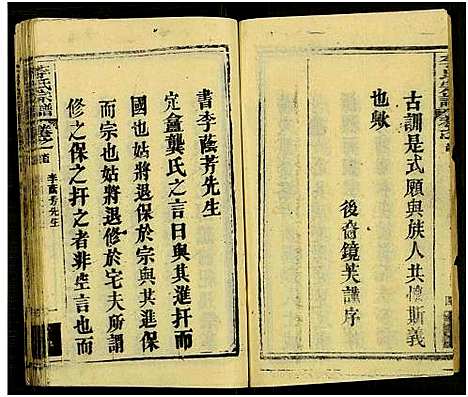 古訓是式願與族人共懷斯義
也歟
後裔鏡芙謹序
李氏宗譜
書李蔭芳先生
定盦龔氏之言曰與其進扞而
國也姑將退保於宗與其進保
而宗也姑將退修於宅夫所謂
修之保之扞之者非空言也而
李氏宗譜
李蔭芳先生